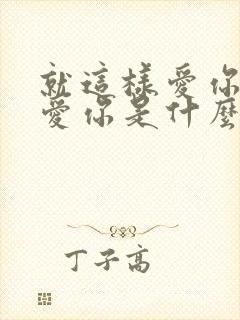 就這樣愛你
愛你是什麼
丁子高